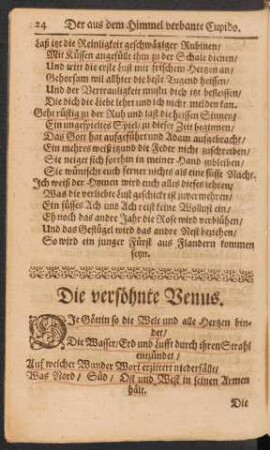 24 Der aus dem Himmel verbante Cupido.
Laß itzt die Reinligkeit geschwätziger Rubinen/
Mit Küssen angefüllt ihm zu der Schale dienen/
Und tritt die erste Lust mit frischem Hertzen an/
Gehorsam wil allhier die beste Tugend heissen/
Und der Vertrauligkeit mustu dich itzt befleissen/
Die dich die Liebe lehrt und ich nicht melden kan.
Geht rüstig zu der Ruh und last die heissen Sinnen/
Ein ungespieltes Spiel zu dieser Zeit beginnen/
Das Gott hat aufgeführt und Adam aufgebracht/
Ein mehres weiß itzund die Feder nicht zuschreiben/
Sie neiget sich forthin in meiner Hand zubleiben/
Sie wünscht euch ferner nichts als eine süsse Nacht.
Ich weiß der Hymen wird euch alles dieses lehren/
Was die verliebte Lust geschickt ist zuvermehren/
Ein süsses Ach und Ach reist keine Wollust ein/
Eh noch das andre Jahr die Rose wird verblühen/
Und das Geflügel wird das andre Nest beziehen/
So wird ein junger Fürst aus Flandern kommen
seyn.
Die versöhnte Venus.
DIe Göttin so die Welt und alle Hertzen bin-
det/
Die Wasser/Erd und Lufft durch ihren Strahl
entzündet/
Auf welcher Wunder Wort erzittert niederfällt/
Was Nord/ Süd/ Ost und West in seinen Armen
hält.
Die